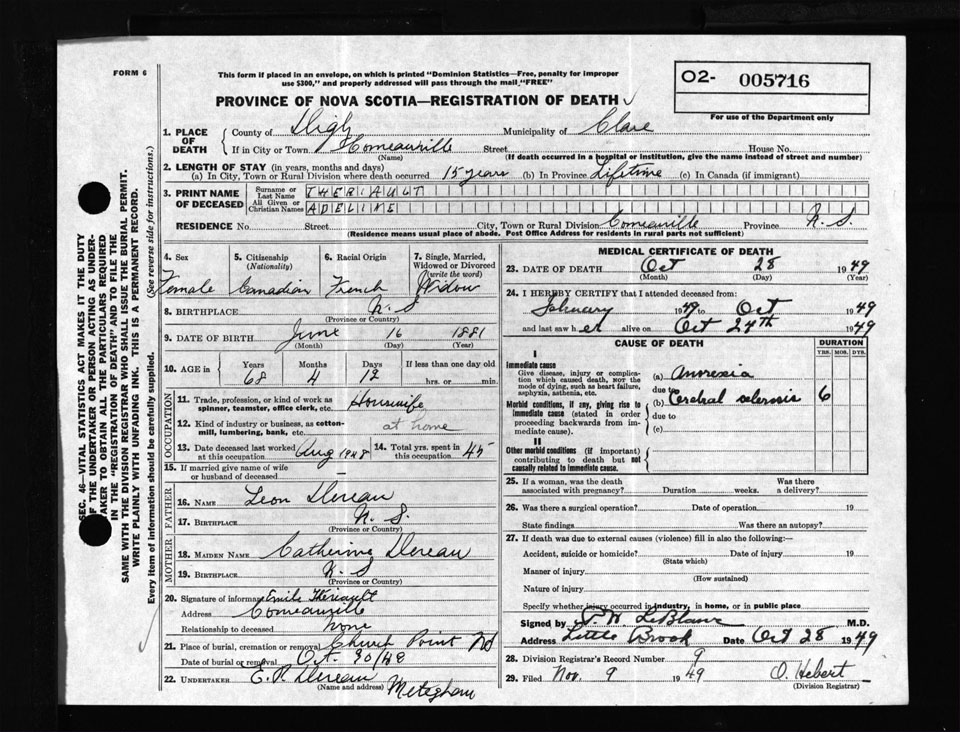 FORM 6
This form if placed in an envelope, on which is printed "Dominion Statistics—Free, penalty for improper
use $300," and properly addressed will pass through the mail "FREE"
O2- 005716
For use of the Department only
PROVINCE OF NOVA SCOTIA—REGISTRATION OF DEATH
SEC. 46—VITAL STATISTICS ACT MAKES IT THE DUTY
OF THE UNDERTAKER OR PERSON ACTING AS UNDER-
TAKER TO OBTAIN ALL THE PARTICULARS REQUIRED
IN THE "REGISTRATION OF DEATH" AND TO FILE THE
SAME WITH THE DIVISION REGISTRAR WHO SHALL ISSUE THE BURIAL PERMIT.
WRITE PLAINLY WITH UNFADING INK. THIS IS A PERMANENT RECORD.
Every item of information should be carefully supplied. (See reverse side for instructions.)
1. PLACE OF DEATH County of Digby Municipality of Clare
If in City or Town Comeauville Street House No.
(Name) (If death occurred in a hospital or institution, give the name instead of street and number)
2. LENGTH OF STAY (in years, months and days)
(a) In City, Town or Rural Division where death occurred 15 years (b) In Province Lifetime (c) In Canada (if immigrant)
3. PRINT NAME OF DECEASED Surname or Last Name THERIAULT
All Given or Christian Names ADELINE
RESIDENCE No. Street City, Town or Rural Division Comeauville Province N.S.
(Residence means usual place of abode. Post Office Address for residents in rural parts not sufficient)
4. Sex 5. Citizenship (Nationality) 6. Racial Origin 7. Single, Married, Widowed or Divorced (write the word)
Female Canadian French Widow
8. BIRTHPLACE N.S
(Province or Country)
9. DATE OF BIRTH June 16 1881
(Month) (Day) (Year)
10. AGE in Years Months Days If less than one day old
68 4 12 hrs. or min.
OCCUPATION
11. Trade, profession or kind of work as spinner, teamster, office clerk, etc. Housewife
12. Kind of industry or business, as cotton-mill, lumbering, bank, etc. at home
13. Date deceased last worked at this occupation Aug 1948 14. Total yrs. spent in this occupation 45
15. If married give name of wife or husband of deceased —
FATHER
16. NAME Leon Dereau
17. BIRTHPLACE N. S.
(Province or Country)
MOTHER
18. MAIDEN NAME Catherine Dereau
19. BIRTHPLACE N.S
(Province or Country)
20. Signature of informant Emile Theriault
Address Comeauville
Relationship to deceased none
21. Place of burial, cremation or removal Church Point
Date of burial or removal Oct. 30/48
22. UNDERTAKER E.P. Dereau Meteghan
(Name and address)
MEDICAL CERTIFICATE OF DEATH
23. DATE OF DEATH Oct 28 1949
(Month) (Day) (Year)
24. I HEREBY CERTIFY that I attended deceased from:
February 1949 to Oct 1949
and last saw her alive on Oct 24th 1949
CAUSE OF DEATH DURATION
YRS. MOS. DYS.
I
Immediate cause
Give disease, injury or complication which caused death, NOT the mode of dying, such as heart failure, asphyxia, asthenia, etc.
(a) Anorexia
due to
Morbid conditions, if any, giving rise to immediate cause (stated in order proceeding backwards from immediate cause).
(b) Cerebral sclerosis 6
due to
(c)
II
Other morbid conditions (if important) contributing to death but not causally related to immediate cause.
25. If a woman, was the death associated with pregnancy? Duration weeks. Was there a delivery?
26. Was there a surgical operation? Date of operation 19
State findings Was there an autopsy?
27. If death was due to external causes (violence) fill in also the following:—
Accident, suicide or homicide? Date of injury 19
(State which)
Manner of injury
(How sustained)
Nature of injury
Specify whether injury occurred in industry, in home, or in public place
Signed by P. W. LeBlanc M.D.
Address Little Brook Date Oct 28 1949
28. Division Registrar's Record Number 9
29. Filed Nov. 9 1949 O. Hebert
(Division Registrar)